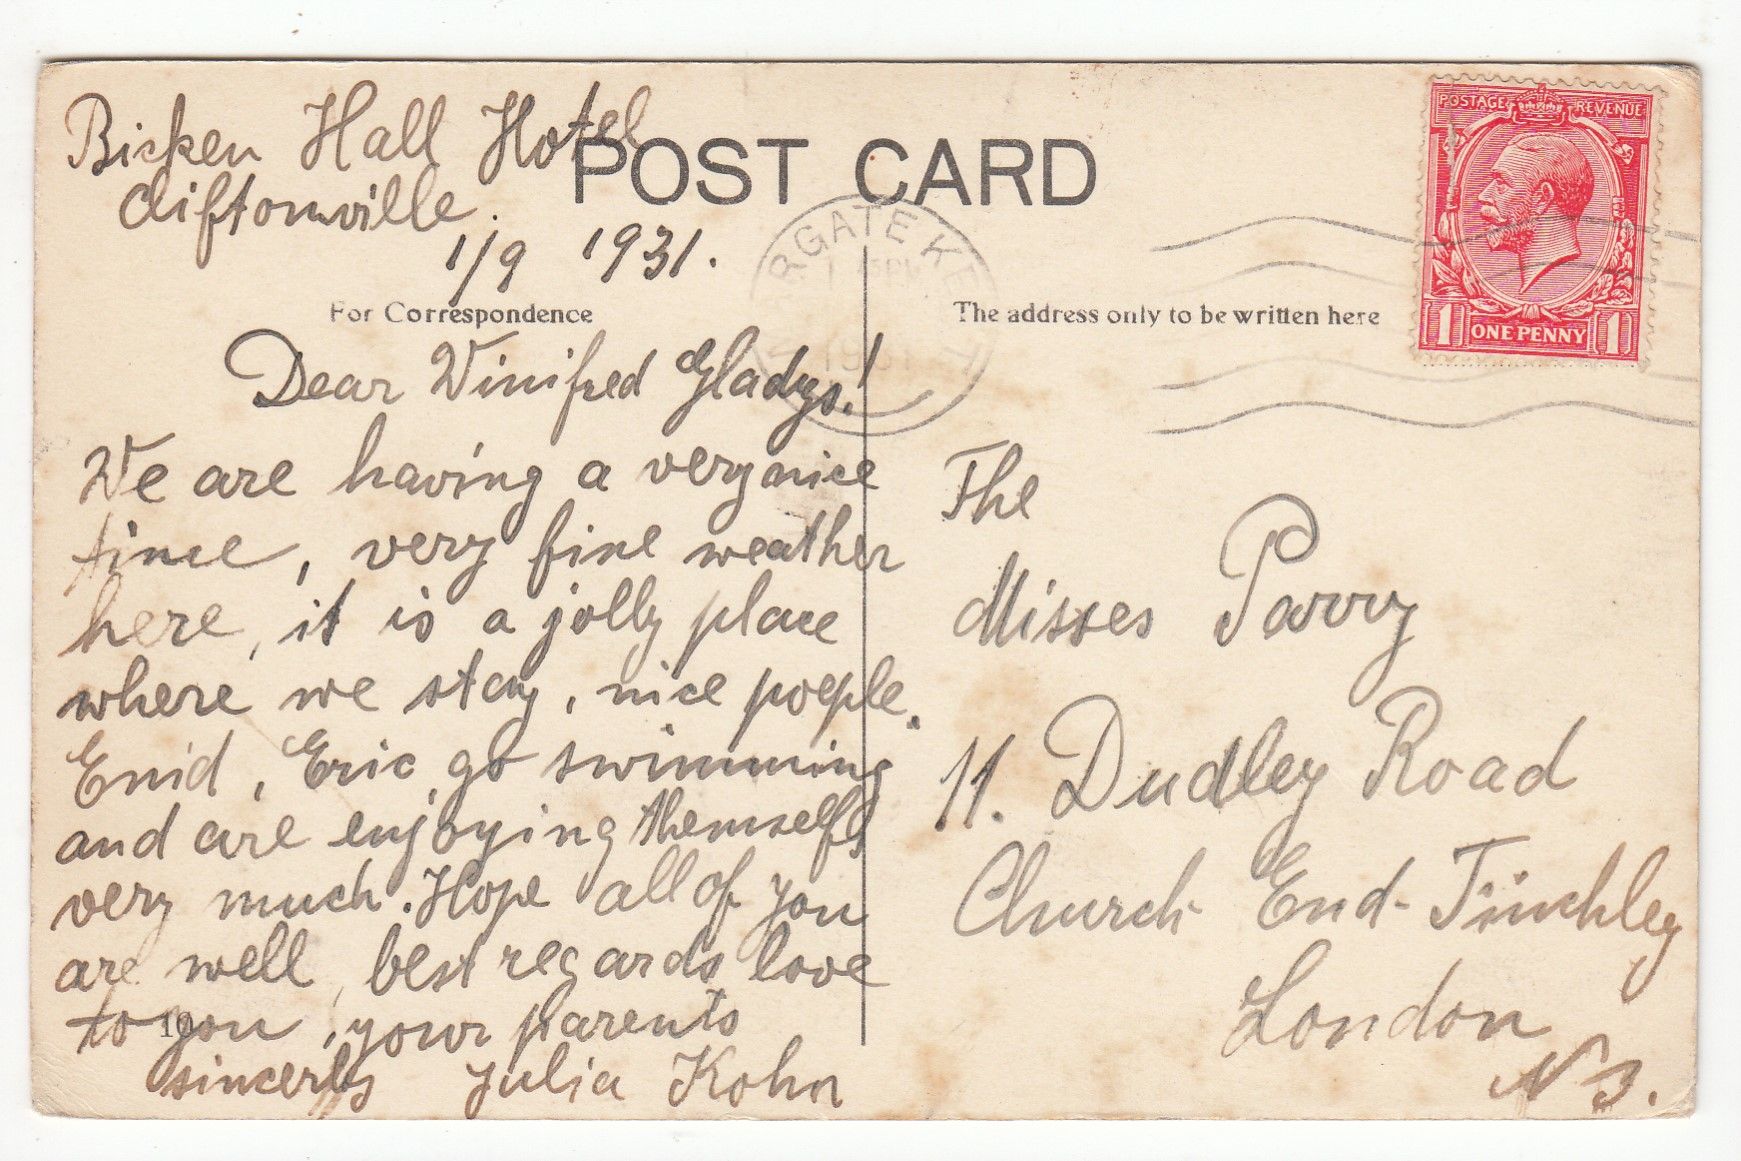 Bicken Hall Hotel
Cliftonville.
1/9 1931.
POST CARD
For Correspondence
Dear Winifred Gladys!
We are having a very nice
time, very fine weather
here, it is a jolly place
where we stay, nice poeple.
Enid, Eric, go swimming
and are enjoying themselfs
very much. Hope all of you
are well, best regards love
to you, your parents
sincerly Julia Kohn
MARGATE KENT
1931
POSTAGE REVENUE
1 ONE PENNY 1
The address only to be written here
The
Misses Parry
11. Dudley Road
Church End-Finchley
London
N 3.